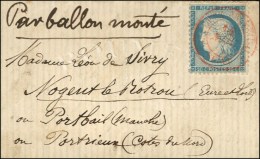 Par ballon monté
Madame Léon de Sivry
Nogent le Rotrou (Eure et Loir)
ou Portbail (Manche)
ou Portrieux (Côtes du Nord)